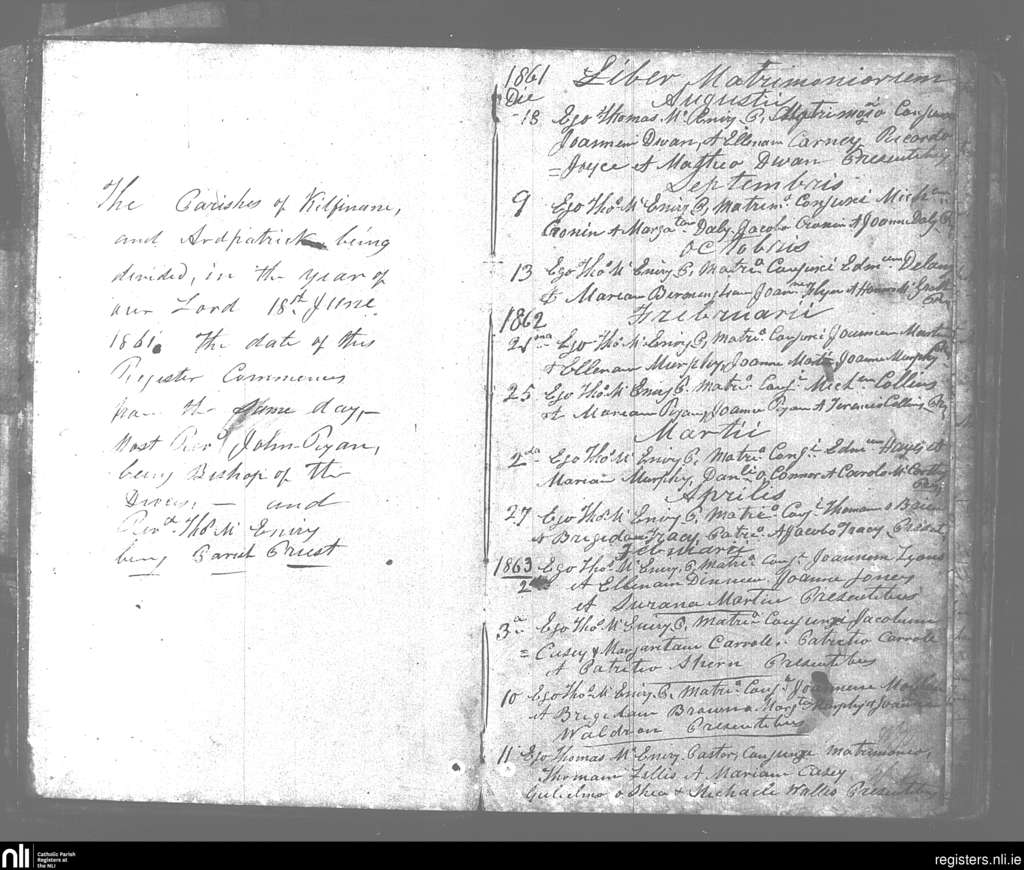 The Parishes of Kilfinane,
and Ardpatrick being
divided, in the year of
our Lord 18th June
1861. The date of this
Register Commences
from the same day,
Most Revd John Ryan,
being Bishop of the
Diocess, — and
Revd Thos Mc Eniry
being Parish Priest
1861 Liber Matrimoniorum
Die Augusti
18 Ego Thomas Mc Eniry P. Matrimoo Conjunxi
Joannem Dwan, et Ellenam Carney Ricardo
Joyce et Matheo Dwan Presentibus
Septembris
9 Ego Thos Mc Eniry P. Matrimo Conjunxi Michlem
Cronin et Margatam Daly, Jacobo Cronin et Joanne Daly
Octobris
13 Ego Thos Mc Eniry P. Matrio Conjunxi Edmum Delany
et Mariam Bermingham Joanne
1862 Frebruarii
Ego Thos Mc Eniry P. Matrio Conjunxi Joannem
et Ellenam Murphy, Joanne Joanne Murphy
25 Ego Thos Mc Eniry P. Matrio Conji Michem Collins
et Mariam Ryan, Joanne Ryan et Terencio Collins
Martii
2da Ego Thos Mc Eniry P. Matrio Conji Edmum Hayes et
Mariam Murphy, Danli O Connor et Carrolo Mc Carthy
Aprilis
27 Ego Thos Mc Eniry P. Matrio Conji Thomam o Brien
et Brigidam Tracy, Patrio et Jacobo Tracy, Present
Februarii
1863 Ego Thos Mc Eniry P. Matrio Conji Joannem Lyons
2 et Ellenam Dinneen, Joanne Jones
et Suzana Martin Presentibus
3a Ego Thos Mc Eniry P. Matrio Conjunxi Jacobum
Casey & Margaritam Carroll. Patritio Carroll
et Patritio Ahern Presentibus
10 Ego Thos Mc Eniry P. Matrio Conji Joannem
et Brigidam Brown Margt Murphy & Joanne
Waldron Presentibus
11 Ego Thomas Mc Eniry Pastor, Conjunxi matrimonio,
Thomam Lillis et Mariam Casey
Gulielmo o Shea & Michaele Walsh Presentibus
nli Catholic Parish
Registers at
the NLI
registers.nli.ie